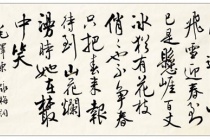 飛雪迎春到
已是懸崖百丈
冰猶有花枝
俏々也不爭春
只把春來報
待到山花爛
漫時她在叢
中笑
毛澤東 詠梅詞